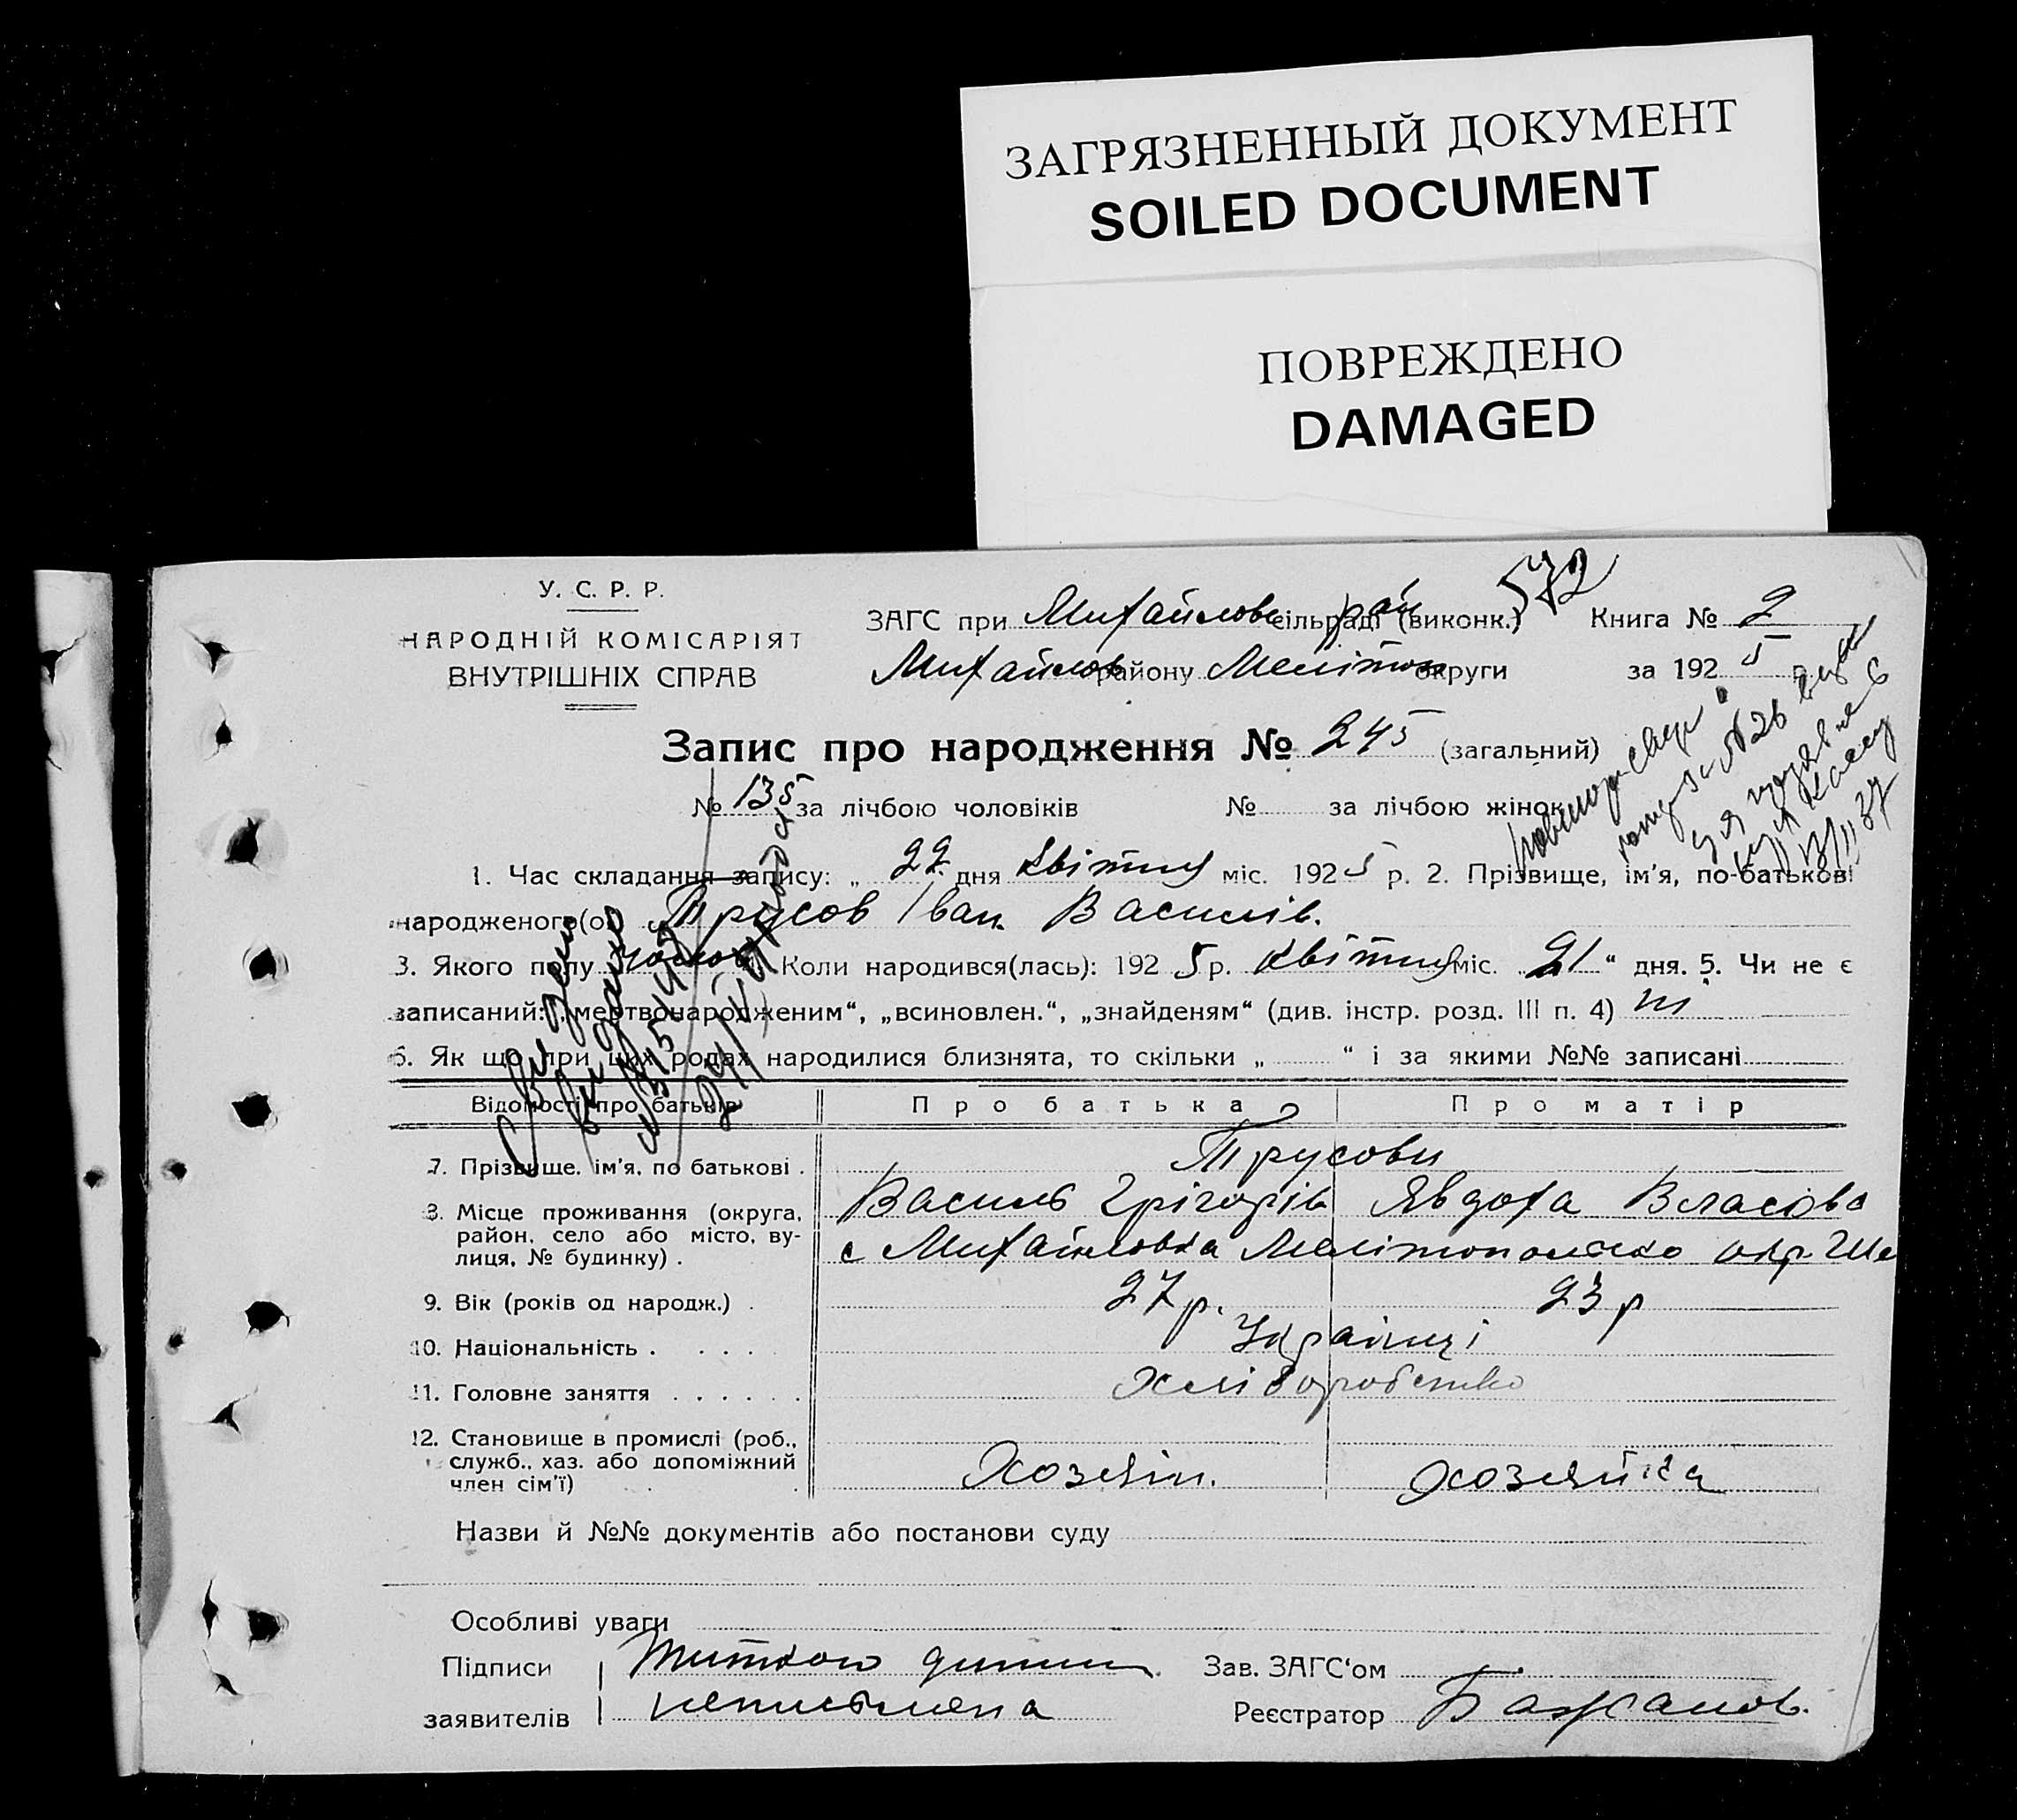 ЗАГРЯЗНЕННЫЙ ДОКУМЕНТ
SOILED DOCUMENT
ПОВРЕЖДЕНО
DAMAGED
572
У. С. Р. Р.
НАРОДНІЙ КОМІСАРІЯТ
ВНУТРІШНІХ СПРАВ
ЗАГС при Михайлов сільраді рай (виконк.) Книга № 2
Михайлов району Мелітоп округи за 1925 р.
Запис про народження № 245 (загальний)
№ 135 за лічбою чоловіків № за лічбою жінок
1. Час складання запису: „ 22 дня Квітня міс. 1925 р. 2. Прізвище, ім'я, по-батькові
народженого(ої) Трусов Іван Василів.
3. Якого полу Коли народився(лась): 1925 р. Квітня міс. „ 21 “ дня. 5. Чи не є
записаний: „мертвонародженим“, „всиновлен.“, „знайденям“ (див. інстр. розд. III п. 4) ні
6. Як що при цих родах народилися близнята, то скільки „ “ і за якими №№ записані
Відомості про батьків Про батька Про матір
7. Прізвище, ім'я, по батькові . Трусови
Василь Грігорів Явдоха Власова
8. Місце проживання (округа, район, село або місто, вулиця, № будинку) . с Михайловка Мелітопольско окр.
9. Вік (років од народж.) . 27 р. 23 р
10. Національність . . . . . Українці
11. Головне заняття . . . . . . Хліборобство
12. Становище в промислі (роб., служб., хаз. або допоміжний член сім'ї) . . Хозяїн. Хозяйка
Назви й №№ документів або постанови суду
Особливі уваги
Підписи заявителів неписьмена
Зав. ЗАГС'ом
Реєстратор Бажанов.